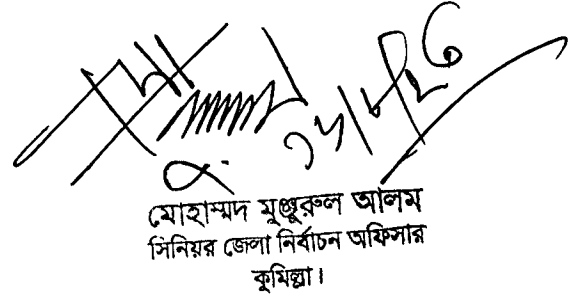 মোহাম্মদ মুঞ্জুরুল আলম
সিনিয়র জেলা নির্বাচন অফিসার
কুমিল্লা।